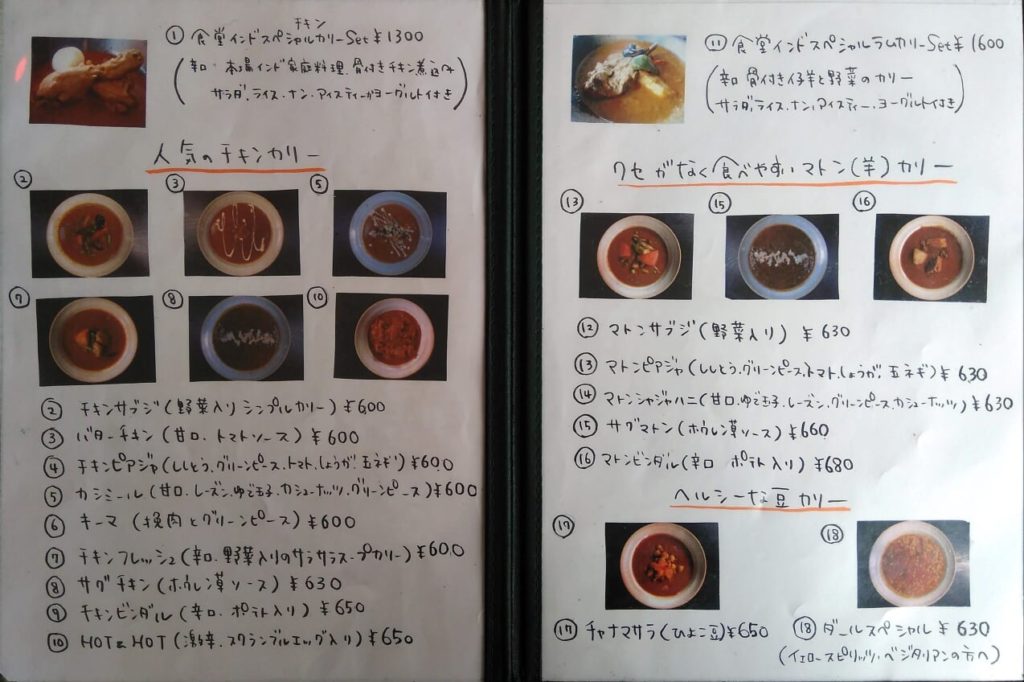 ① 食堂インドスペシャルチキンカリーSet ¥1300
(辛口 本場インド家庭料理、骨付きチキン煮込み
サラダ、ライス、ナン、アイスティーかヨーグルト付き)
人気のチキンカリー
② ③ ⑤
⑦ ⑧ ⑩
② チキンサブジ(野菜入り シンプルカリー)¥600
③ バターチキン(甘口、トマトソース)¥600
④ チキンピアジャ(ししとう、グリーンピース、トマト、しょうが、玉ネギ)¥600
⑤ カシミール(甘口、レーズン、ゆで玉子、カシューナッツ、グリーンピース)¥600
⑥ キーマ(挽肉とグリーンピース)¥600
⑦ チキンフレッシュ(辛口、野菜入りのサラサラスープカリー)¥600
⑧ サグチキン(ホウレン草ソース)¥630
⑨ チキンビンダル(辛口、ポテト入り)¥650
⑩ HOT&HOT(激辛、スクランブルエッグ入り)¥650
⑪ 食堂インドスペシャルラムカリーSet ¥1600
(辛口 骨付き仔羊と野菜のカリー
サラダ、ライス、ナン、アイスティー、ヨーグルト付き)
クセがなく食べやすいマトン(羊)カリー
⑬ ⑮ ⑯
⑫ マトンサブジ(野菜入り)¥630
⑬ マトンピアジャ(ししとう、グリーンピース、トマト、しょうが、玉ネギ)¥630
⑭ マトンシャジャハニ(甘口、ゆで玉子、レーズン、グリーンピース、カシューナッツ)¥630
⑮ サグマトン(ホウレン草ソース)¥660
⑯ マトンビンダル(辛口 ポテト入り)¥680
ヘルシーな豆カリー
⑰ ⑱
⑰ チャナマサラ(ひよこ豆)¥650 ⑱ ダールスペシャル ¥630
(イエロースピリッツ、ベジタリアンの方へ)